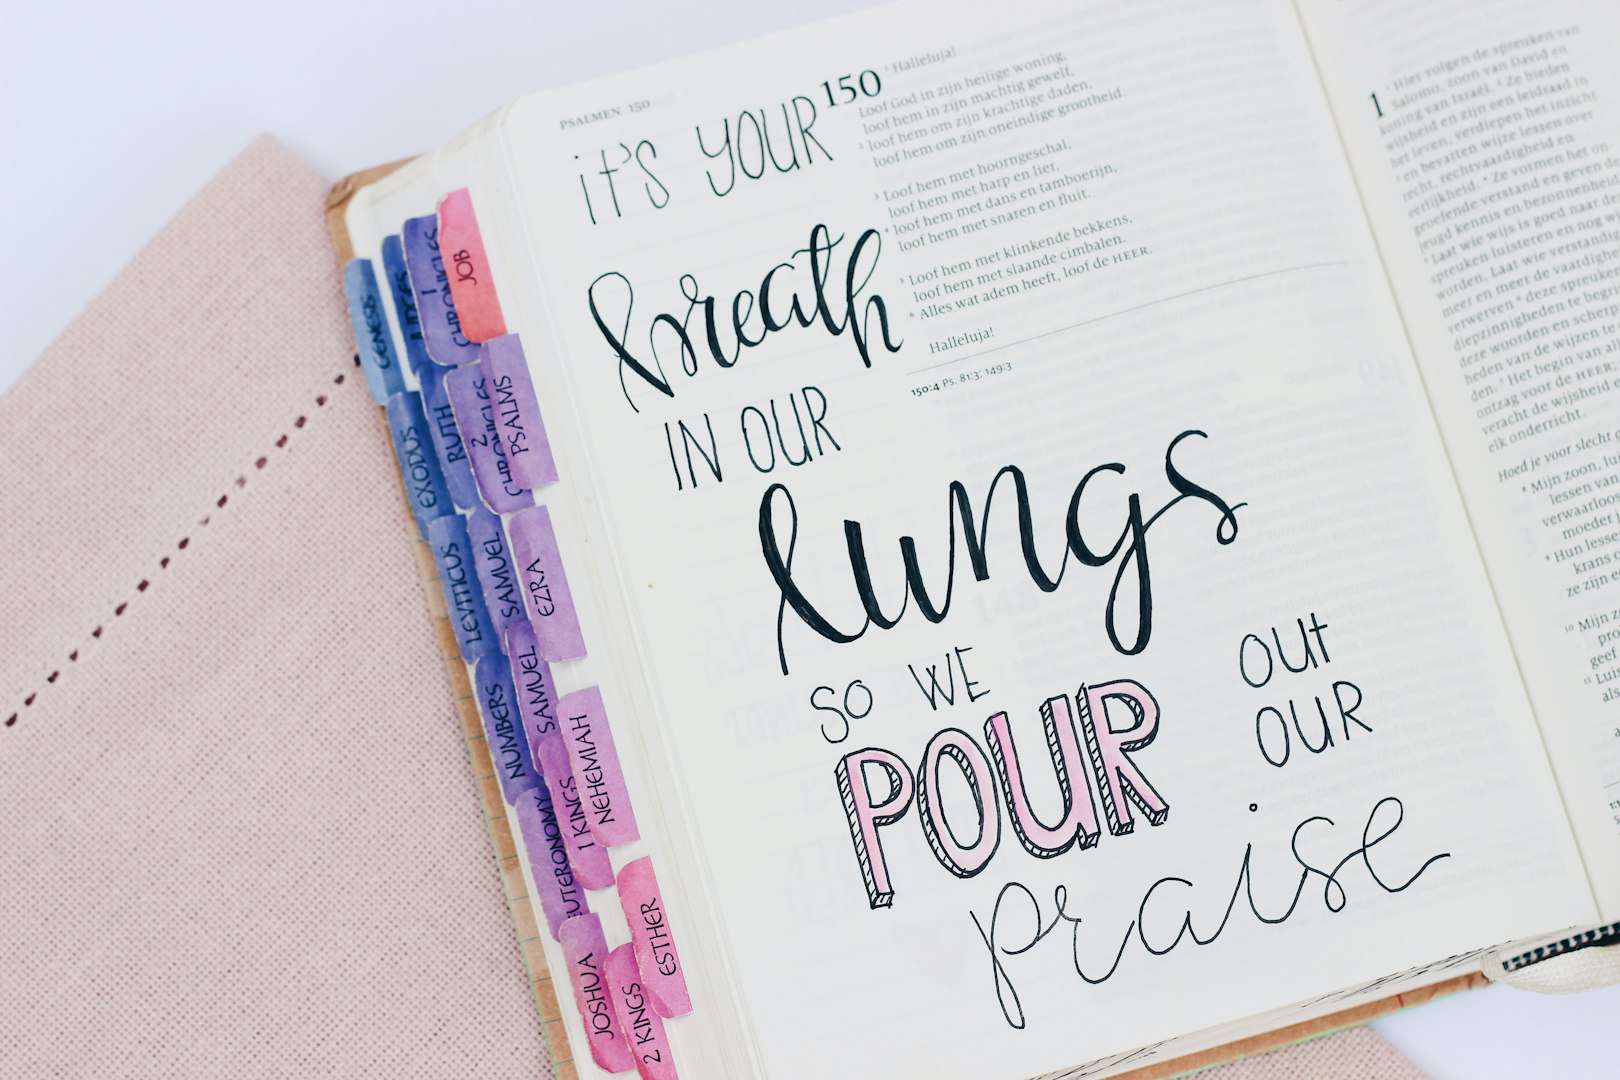 PSALMEN 150
it's YOUR
breath
IN OUR
lungs
SO WE
POUR
OUt
OUR
praise
150
¹ Halleluja!
Loof God in zijn heilige woning,
loof hem in zijn machtig gewelf,
² loof hem om zijn krachtige daden,
loof hem om zijn oneindige grootheid.
³ Loof hem met hoorngeschal,
loof hem met harp en lier,
⁴ loof hem met dans en tamboerijn,
loof hem met snaren en fluit.
⁵ Loof hem met klinkende bekkens,
loof hem met slaande cimbalen.
⁶ Alles wat adem heeft, loof de HEER.
Halleluja!
150:4 Ps. 81:3; 149:3
1
¹ Hier volgen de spreuken van
Salomo, zoon van David en
koning van Israël. ² Ze bieden
wijsheid en zijn een leidraad in
het leven, verdiepen het inzicht
³ en bevatten wijze lessen over
recht, rechtvaardigheid en
eerlijkheid. ⁴ Ze vormen het on-
groefende verstand en geven de
jeugd kennis en bezonnenheid
⁵ Laat wie wijs is goed naar de
spreuken luisteren en nog w
worden. Laat wie verstandig
meer en meer de vaardighe
verwerven ⁶ deze spreuken
diepzinnigheden te begr
deze woorden en scherp
heden van de wijzen te
den. ⁷ Het begin van al
ontzag voor de HEER,
veracht de wijsheid
elk onderricht.
Hoed je voor slecht g
⁸ Mijn zoon, lui
lessen van
verwaarloos
moeder
⁹ Hun lesse
krans o
ze zijn e
¹⁰ Mijn z
pro
geef
¹¹ Luis
als
GENESIS
JUDGES
1 CHRONICLES
JOB
EXODUS
RUTH
2 CHRONICLES
PSALMS
LEVITICUS
SAMUEL
EZRA
NUMBERS
SAMUEL
NEHEMIAH
UTERONOMY
1 KINGS
ESTHER
JOSHUA
2 KINGS